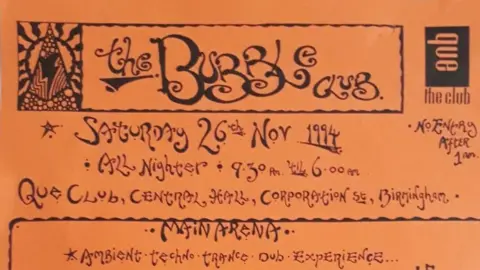 the BUBBLE CLUB.
que
the club
★ SATURDAY 26th NOV 1994
• NO ENTRY AFTER 1am.
• ALL NIGHTER • 9.30pm till 6.00am
QUE CLUB, CENTRAL HALL, CORPORATION ST, BIRMINGHAM •
• MAIN ARENA •
★ AMBIENT • TECHNO • TRANCE • DUB • EXPERIENCE...